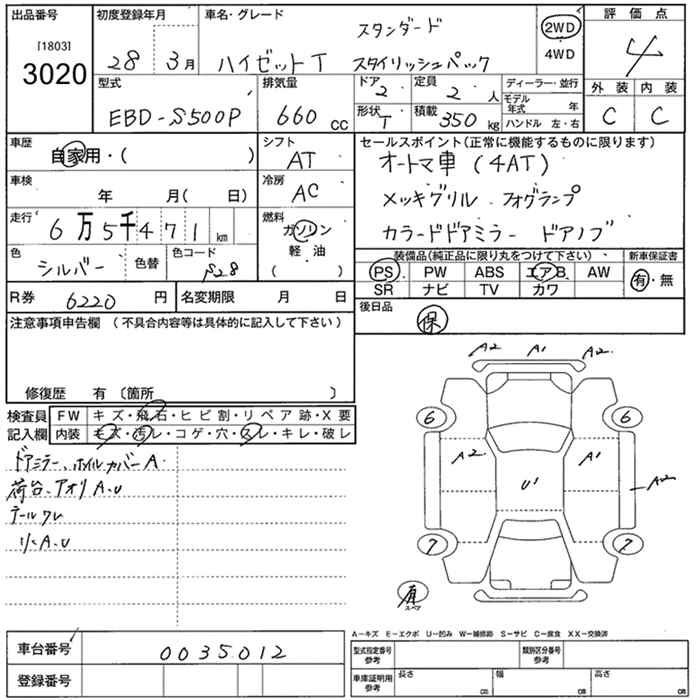 出品番号
[1803]
3020
初度登録年月
28年 3月
車名・グレード
スタンダード
ハイゼットT スタイリッシュパック
2WD
4WD
評価点
4
外装 内装
C C
型式
EBD-S500P
排気量
660 cc
ドア
2
定員
2 人
形状
T
積載
350 kg
ディーラー・並行
モデル年式 年
ハンドル 左・右
車歴
自家用・( )
シフト
AT
車検
年 月( 日)
冷房
AC
走行
6万5千471 km
燃料
ガソリン
軽・油
( )
色
シルバー
色替
色コード
S28
R券 6220 円
名変期限 月 日
セールスポイント(正常に機能するものに限ります)
オートマ車(4AT)
メッキグリル フォグランプ
カラードドアミラー ドアノブ
装備品(純正品に限り丸をつけて下さい)
新車保証書
PS PW ABS エアB AW
SR ナビ TV カワ
有・無
後日品
保
注意事項申告欄(不具合内容等は具体的に記入して下さい)
修復歴 有〔箇所 〕
検査員記入欄
FW キズ・飛石・ヒビ割・リペア跡・X要
内装 キズ・汚レ・コゲ・穴・スレ・キレ・破レ
ドアミラー、ホイルカバーA
荷台、アオリA.U
テールワレ
リヤA.U
A2 A1 A2
6 6
A2 A1
U1
A2
7 7
スペア
A-キズ E-エクボ U-凹み W-補修跡 S-サビ C-腐食 XX-交換済
車台番号
0035012
登録番号
型式指定番号 参考
類別区分番号 参考
車庫証明用 参考
長さ cm
幅 cm
高さ cm